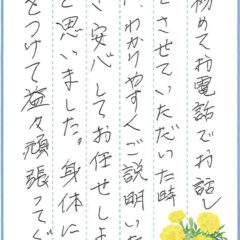 初めてお電話でお話し
とさせていただいた時
わかりやすくご説明いた
安心してお任せしよ
と思いました。身体に
をつけて益々頑張ってく